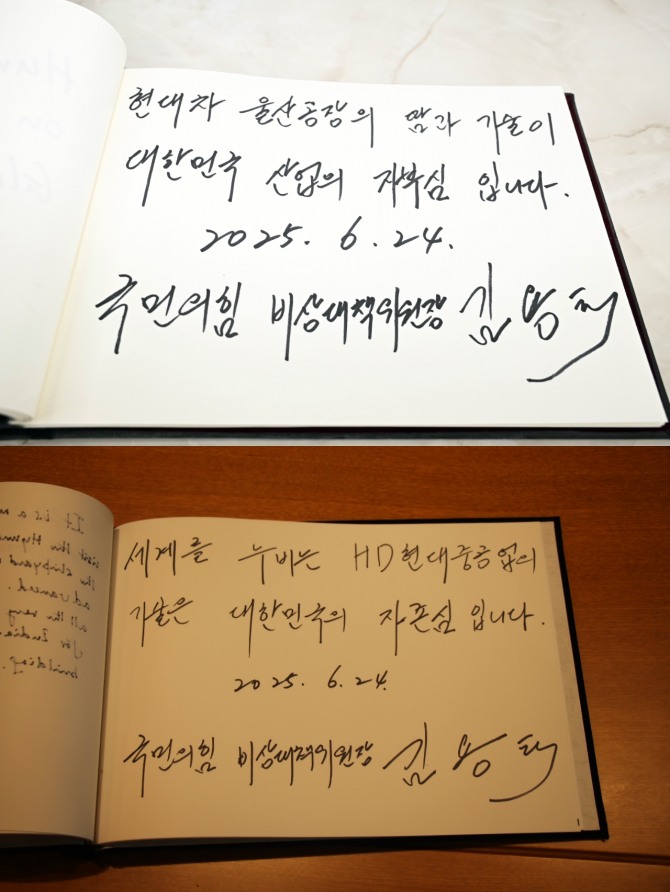 현대차 울산공장의 땀과 기술이
대한민국 산업의 자부심 입니다.
2025. 6. 24.
국민의힘 비상대책위원장 김용태
It is a
세계를 누비는 HD현대중공업의
기술은 대한민국의 자존심 입니다.
2025. 6. 24.
국민의힘 비상대책위원장 김용태